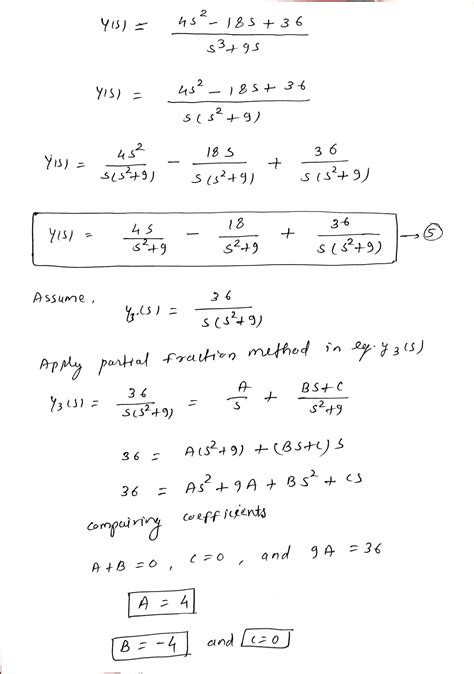 Y(s) = (4s² - 18s + 36) / (s³ + 9s)
Y(s) = (4s² - 18s + 36) / (s(s² + 9))
Y(s) = 4s² / (s(s²+9)) - 18s / (s(s²+9)) + 36 / (s(s²+9))
Y(s) = 4s / (s²+9) - 18 / (s²+9) + 36 / (s(s²+9)) → ⑤
Assume, y₃(s) = 36 / (s(s²+9))
Apply partial fraction method in eq. y₃(s)
Y₃(s) = 36 / (s(s²+9)) = A / s + (Bs+C) / (s²+9)
36 = A(s²+9) + (Bs+C) s
36 = As² + 9A + Bs² + Cs
compairing coefficients
A+B = 0, C = 0, and 9A = 36
A = 4
B = -4 and C = 0